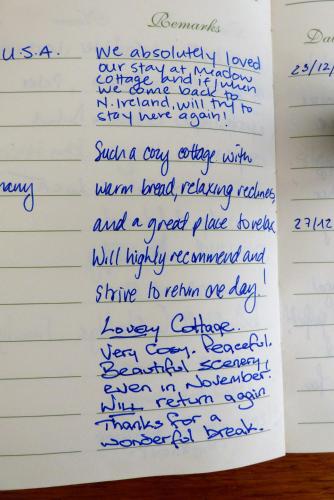 Remarks
U.S.A.
We absolutely loved
our stay at Meadow
Cottage and if/when
we come back to
N.Ireland, will try to
stay here again!
23/12/
Such a cozy cottage with
warm bread, relaxing recliners,
many
and a great place to relax.
27/12
Will highly recommend and
strive to return one day!
Lovely Cottage.
Very Cosy. Peaceful.
Beautiful scenery,
even in November.
Will return again
Thanks for a
wonderful break.